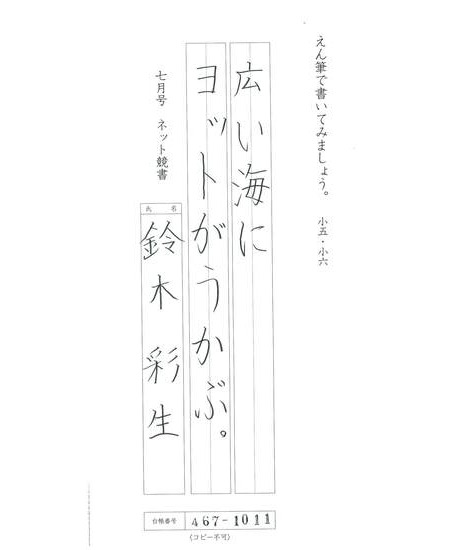 えん筆で書いてみましょう。 小五・小六
広い海に
ヨットがうかぶ。
七月号 ネット競書
氏名
鈴木彩生
台帳番号 467-1011
(コピー不可)